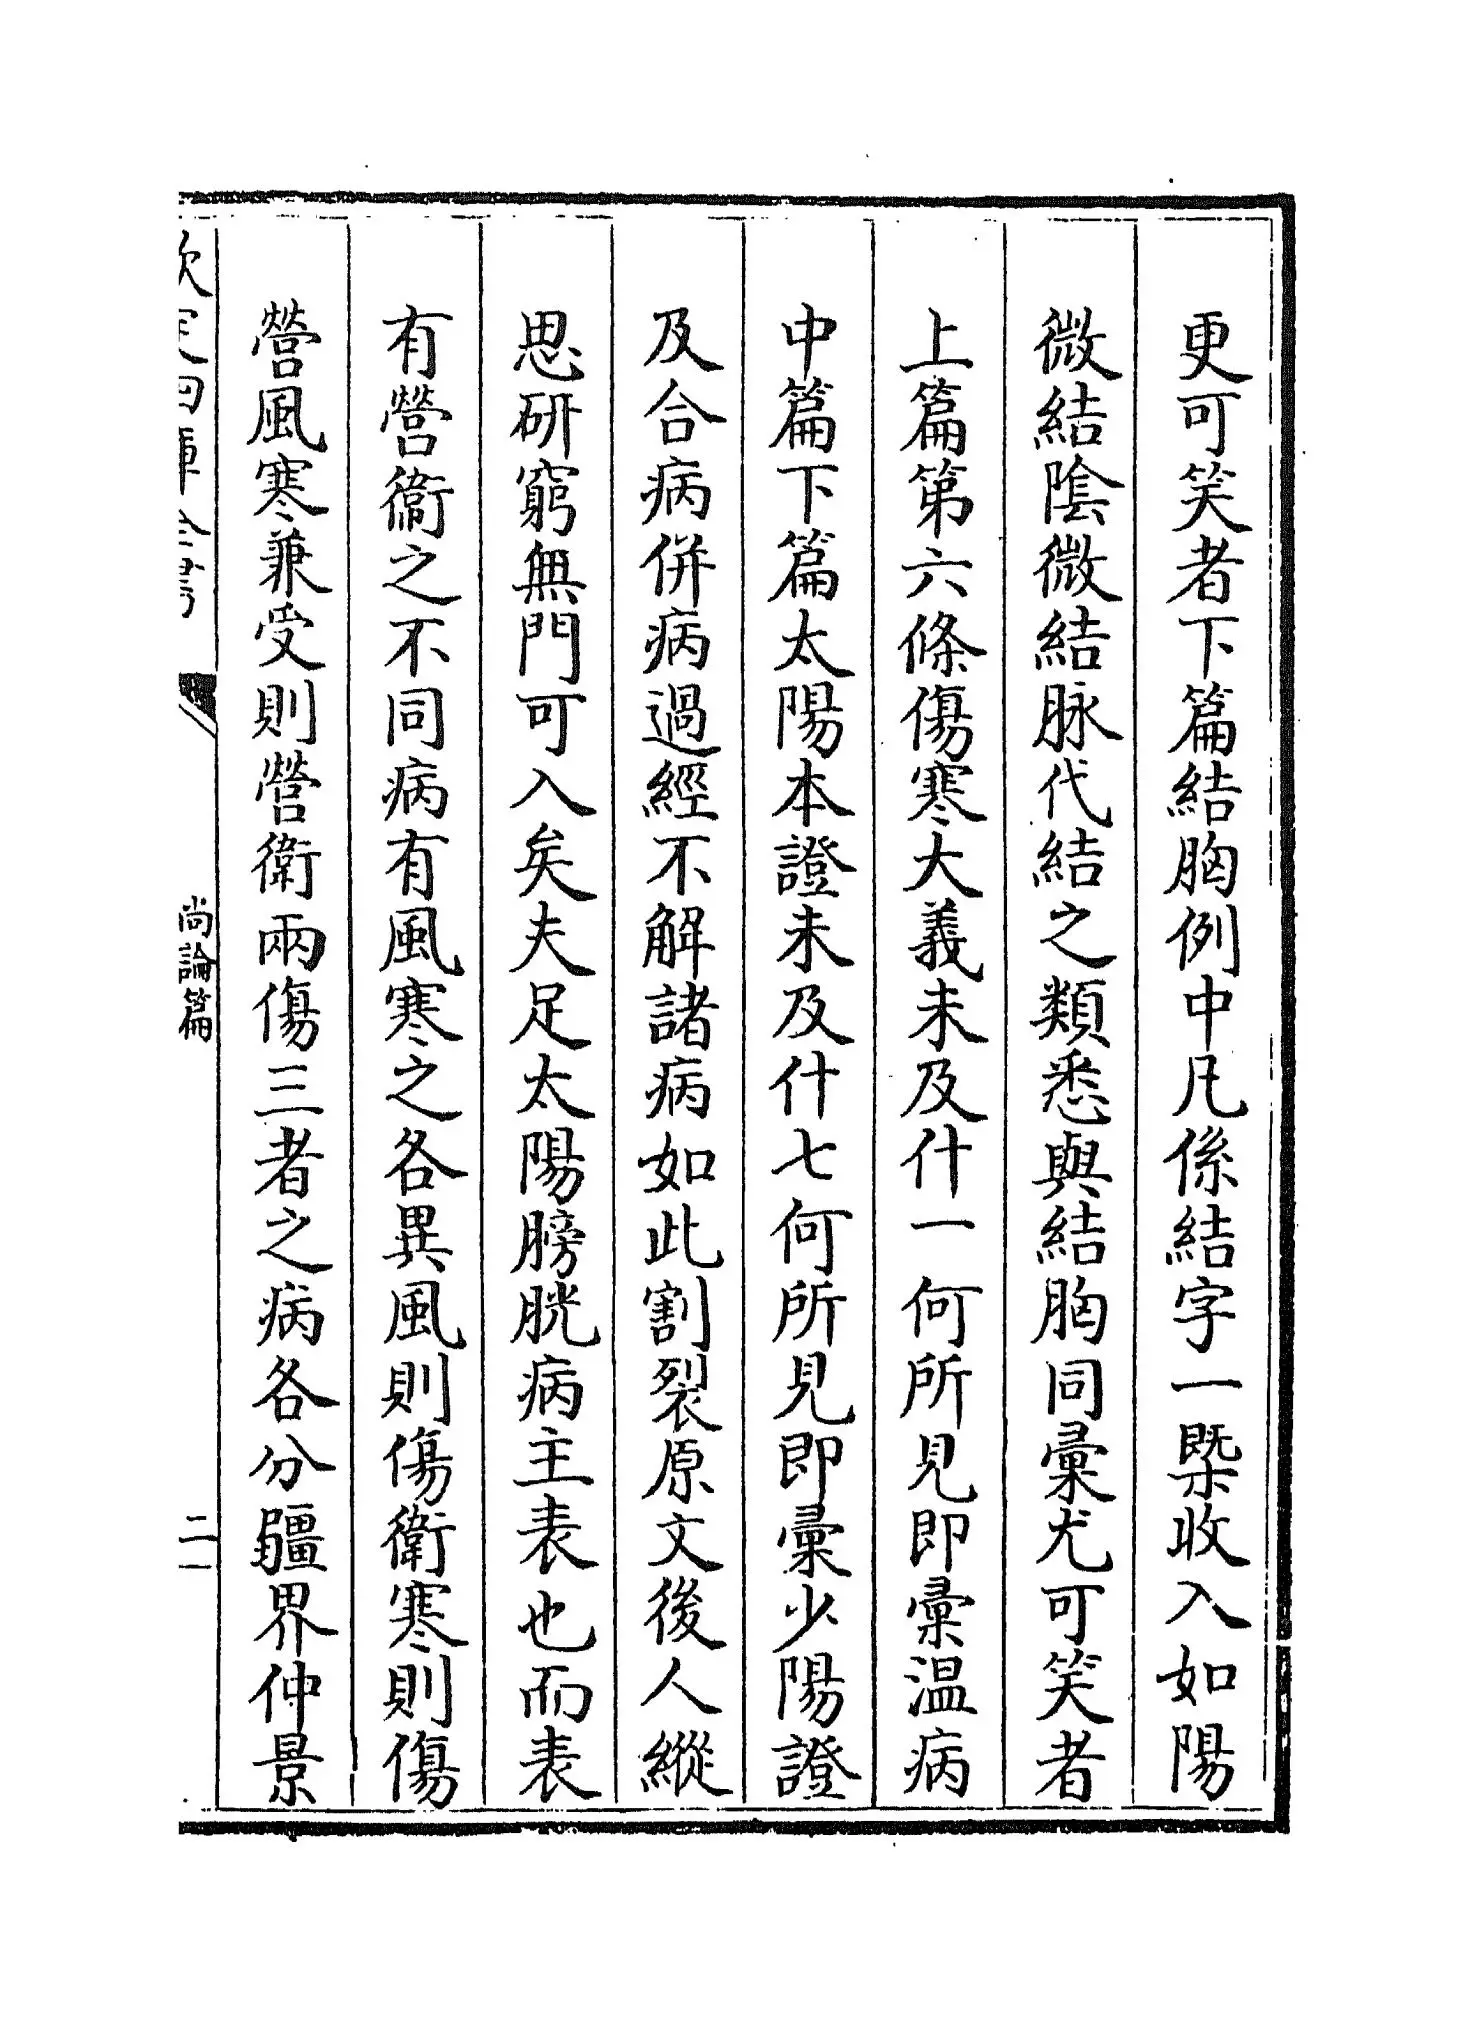 更可笑者下篇結胸例中凡係結字一槩收入如陽
微結陰微結脉代結之類悉與結胸同彙尤可笑者
上篇第六條傷寒大義未及什一何所見即彙溫病
中篇下篇太陽本證未及什七何所見即彙少陽證
及合病併病過經不解諸病如此割裂原文後人縱
思研窮無門可入矣夫足太陽膀胱病主表也而表
有營衞之不同病有風寒之各異風則傷衛寒則傷
營風寒兼受則營衛兩傷三者之病各分疆界仲景
欽定四庫全書
尚論篇
二一